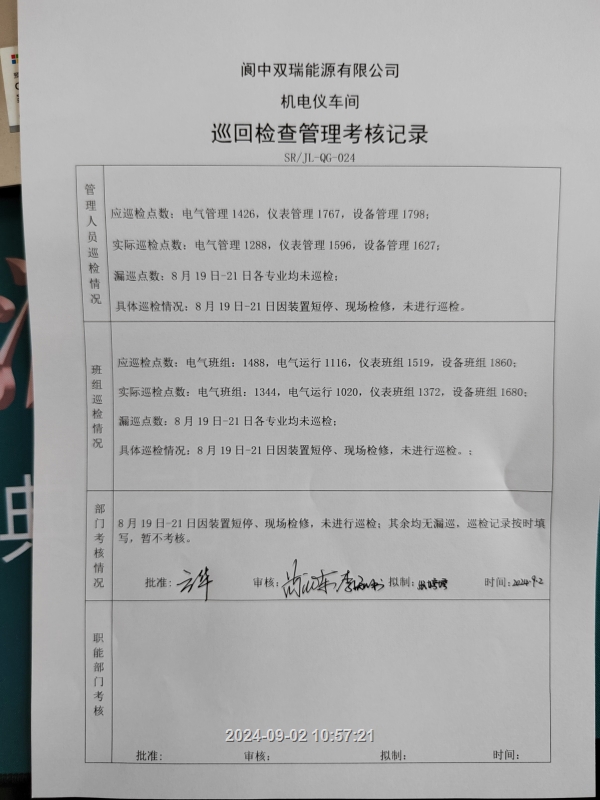 阆中双瑞能源有限公司
机电仪车间
巡回检查管理考核记录
SR/JL-QG-024
管理人员巡检情况
应巡检点数：电气管理1426，仪表管理1767，设备管理1798；
实际巡检点数：电气管理1288，仪表管理1596，设备管理1627；
漏巡点数：8月19日-21日各专业均未巡检；
具体巡检情况：8月19日-21日因装置短停、现场检修，未进行巡检。
班组巡检情况
应巡检点数：电气班组：1488，电气运行1116，仪表班组1519，设备班组1860；
实际巡检点数：电气班组：1344，电气运行1020，仪表班组1372，设备班组1680；
漏巡点数：8月19日-21日各专业均未巡检；
具体巡检情况：8月19日-21日因装置短停、现场检修，未进行巡检。；
部门考核情况
8月19日-21日因装置短停、现场检修，未进行巡检；其余均无漏巡，巡检记录按时填
写，暂不考核。
批准： 审核： 拟制： 时间：2024.9.2
职能部门考核
2024-09-02 10:57:21
批准： 审核： 拟制： 时间：
典